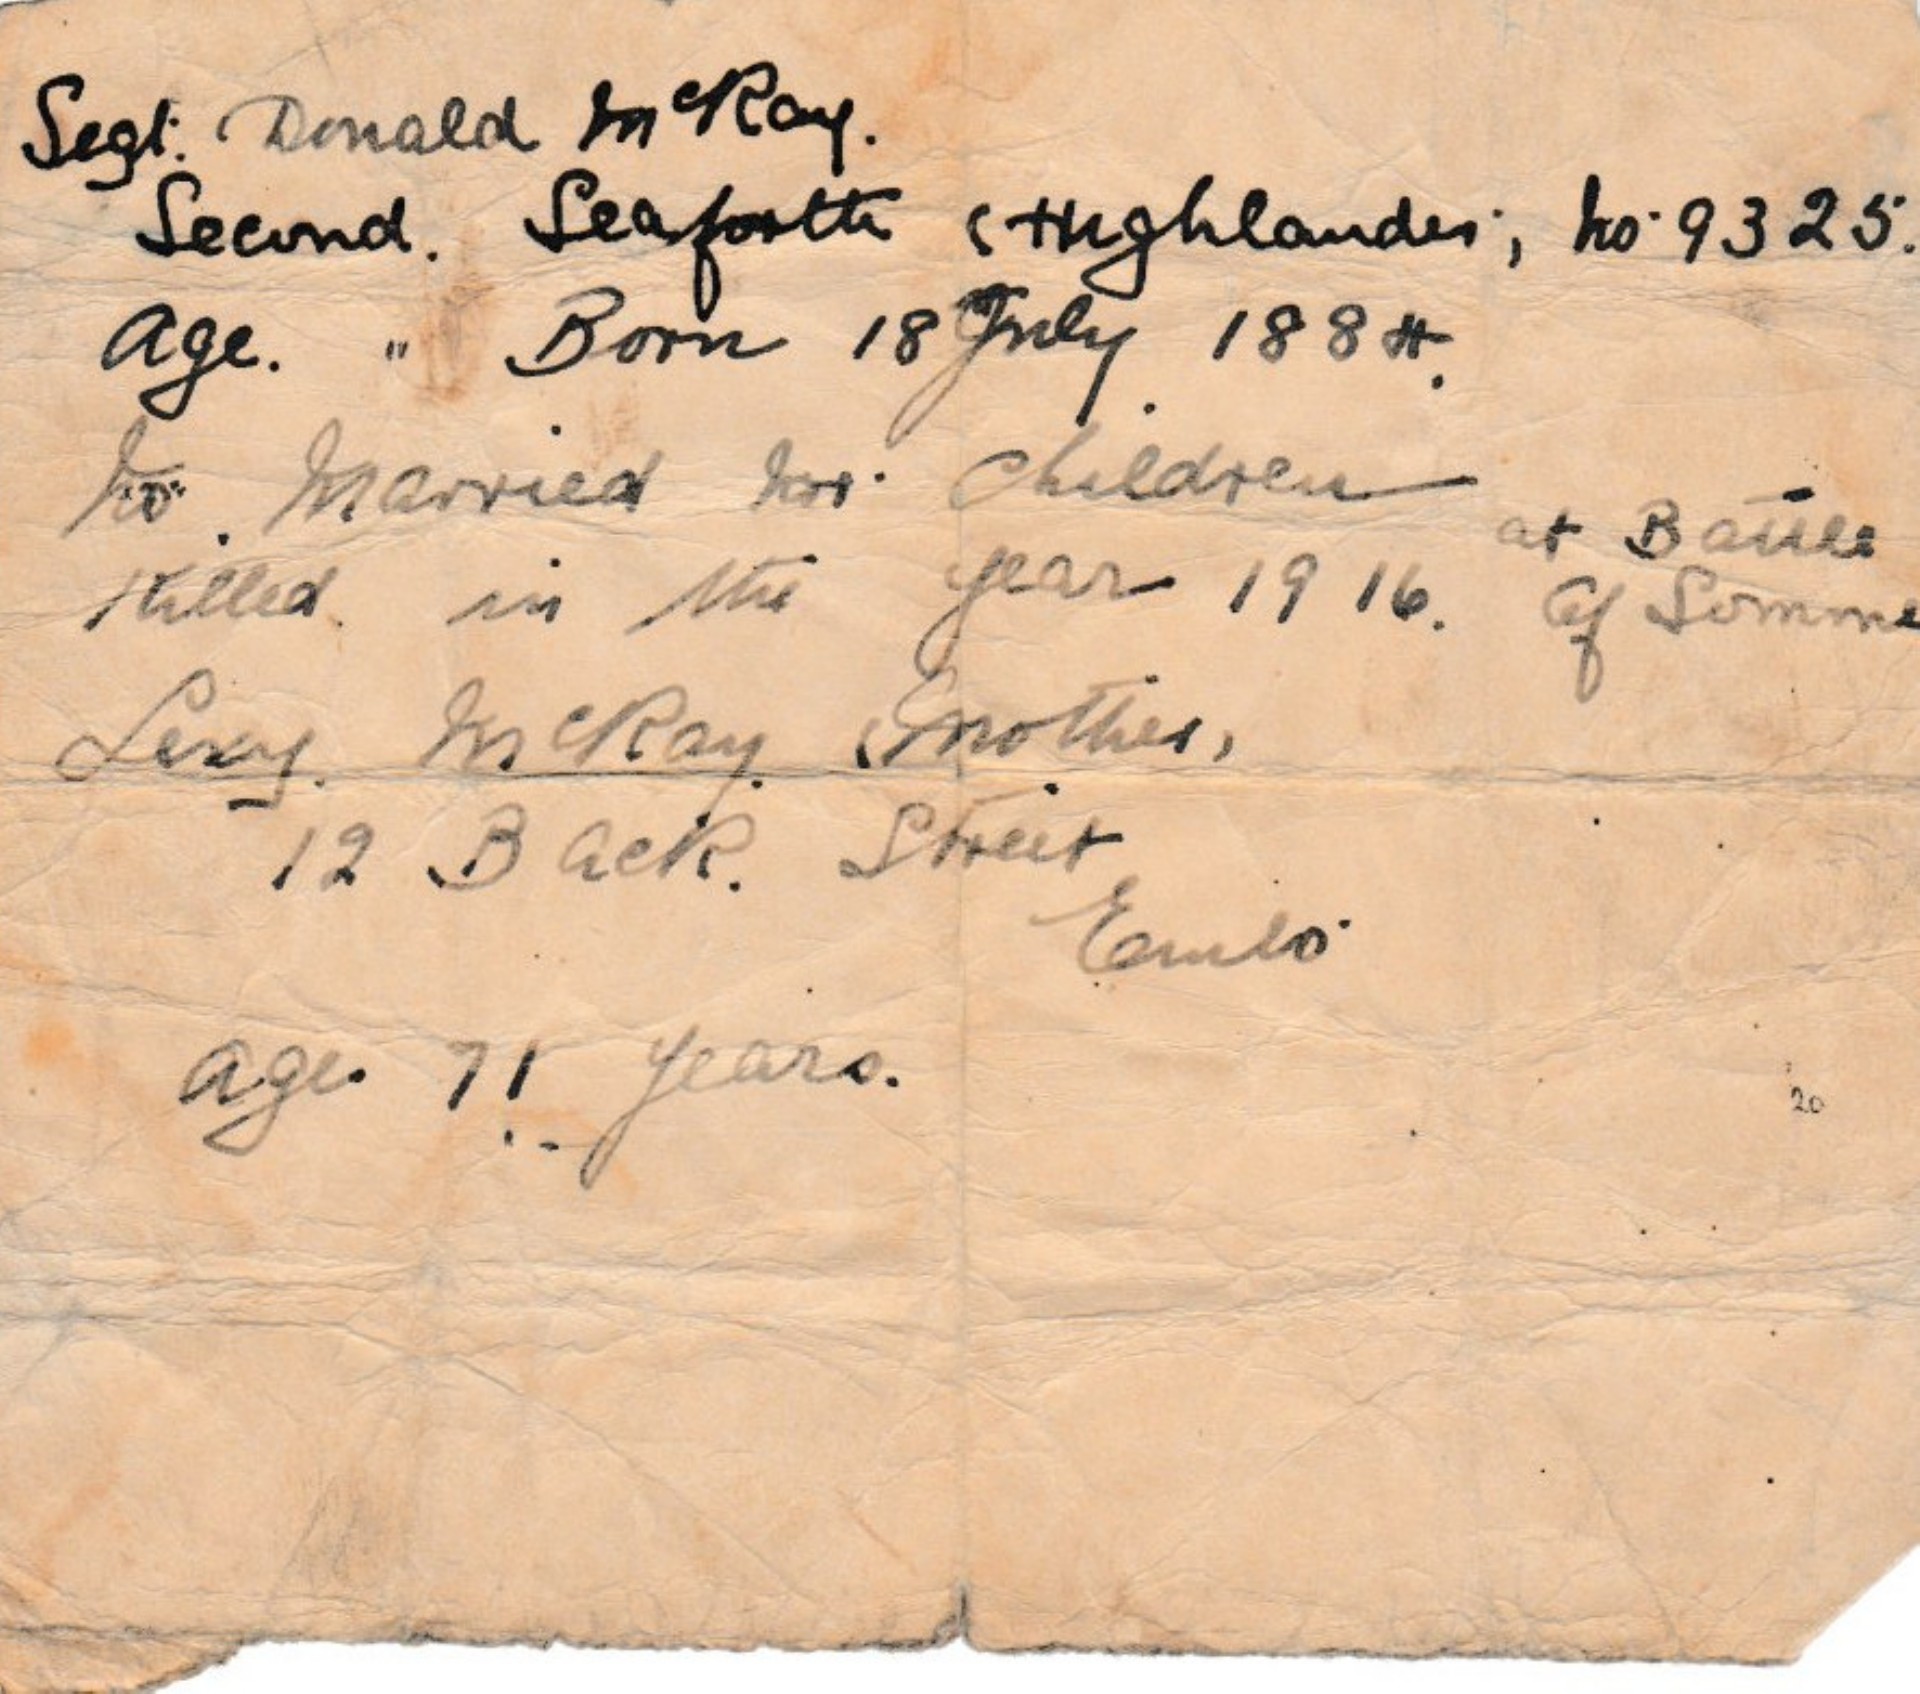 Segt. Donald McRay.
Second. Seaforth (Highlander, No 9325.
Age. " Born 18 July 1884.
No. Married no children
at Battle
Killed in the year 1916. Of Somme
Lexy. McRay (mother,
12 Back Street
Embo
age. 71 years.
20